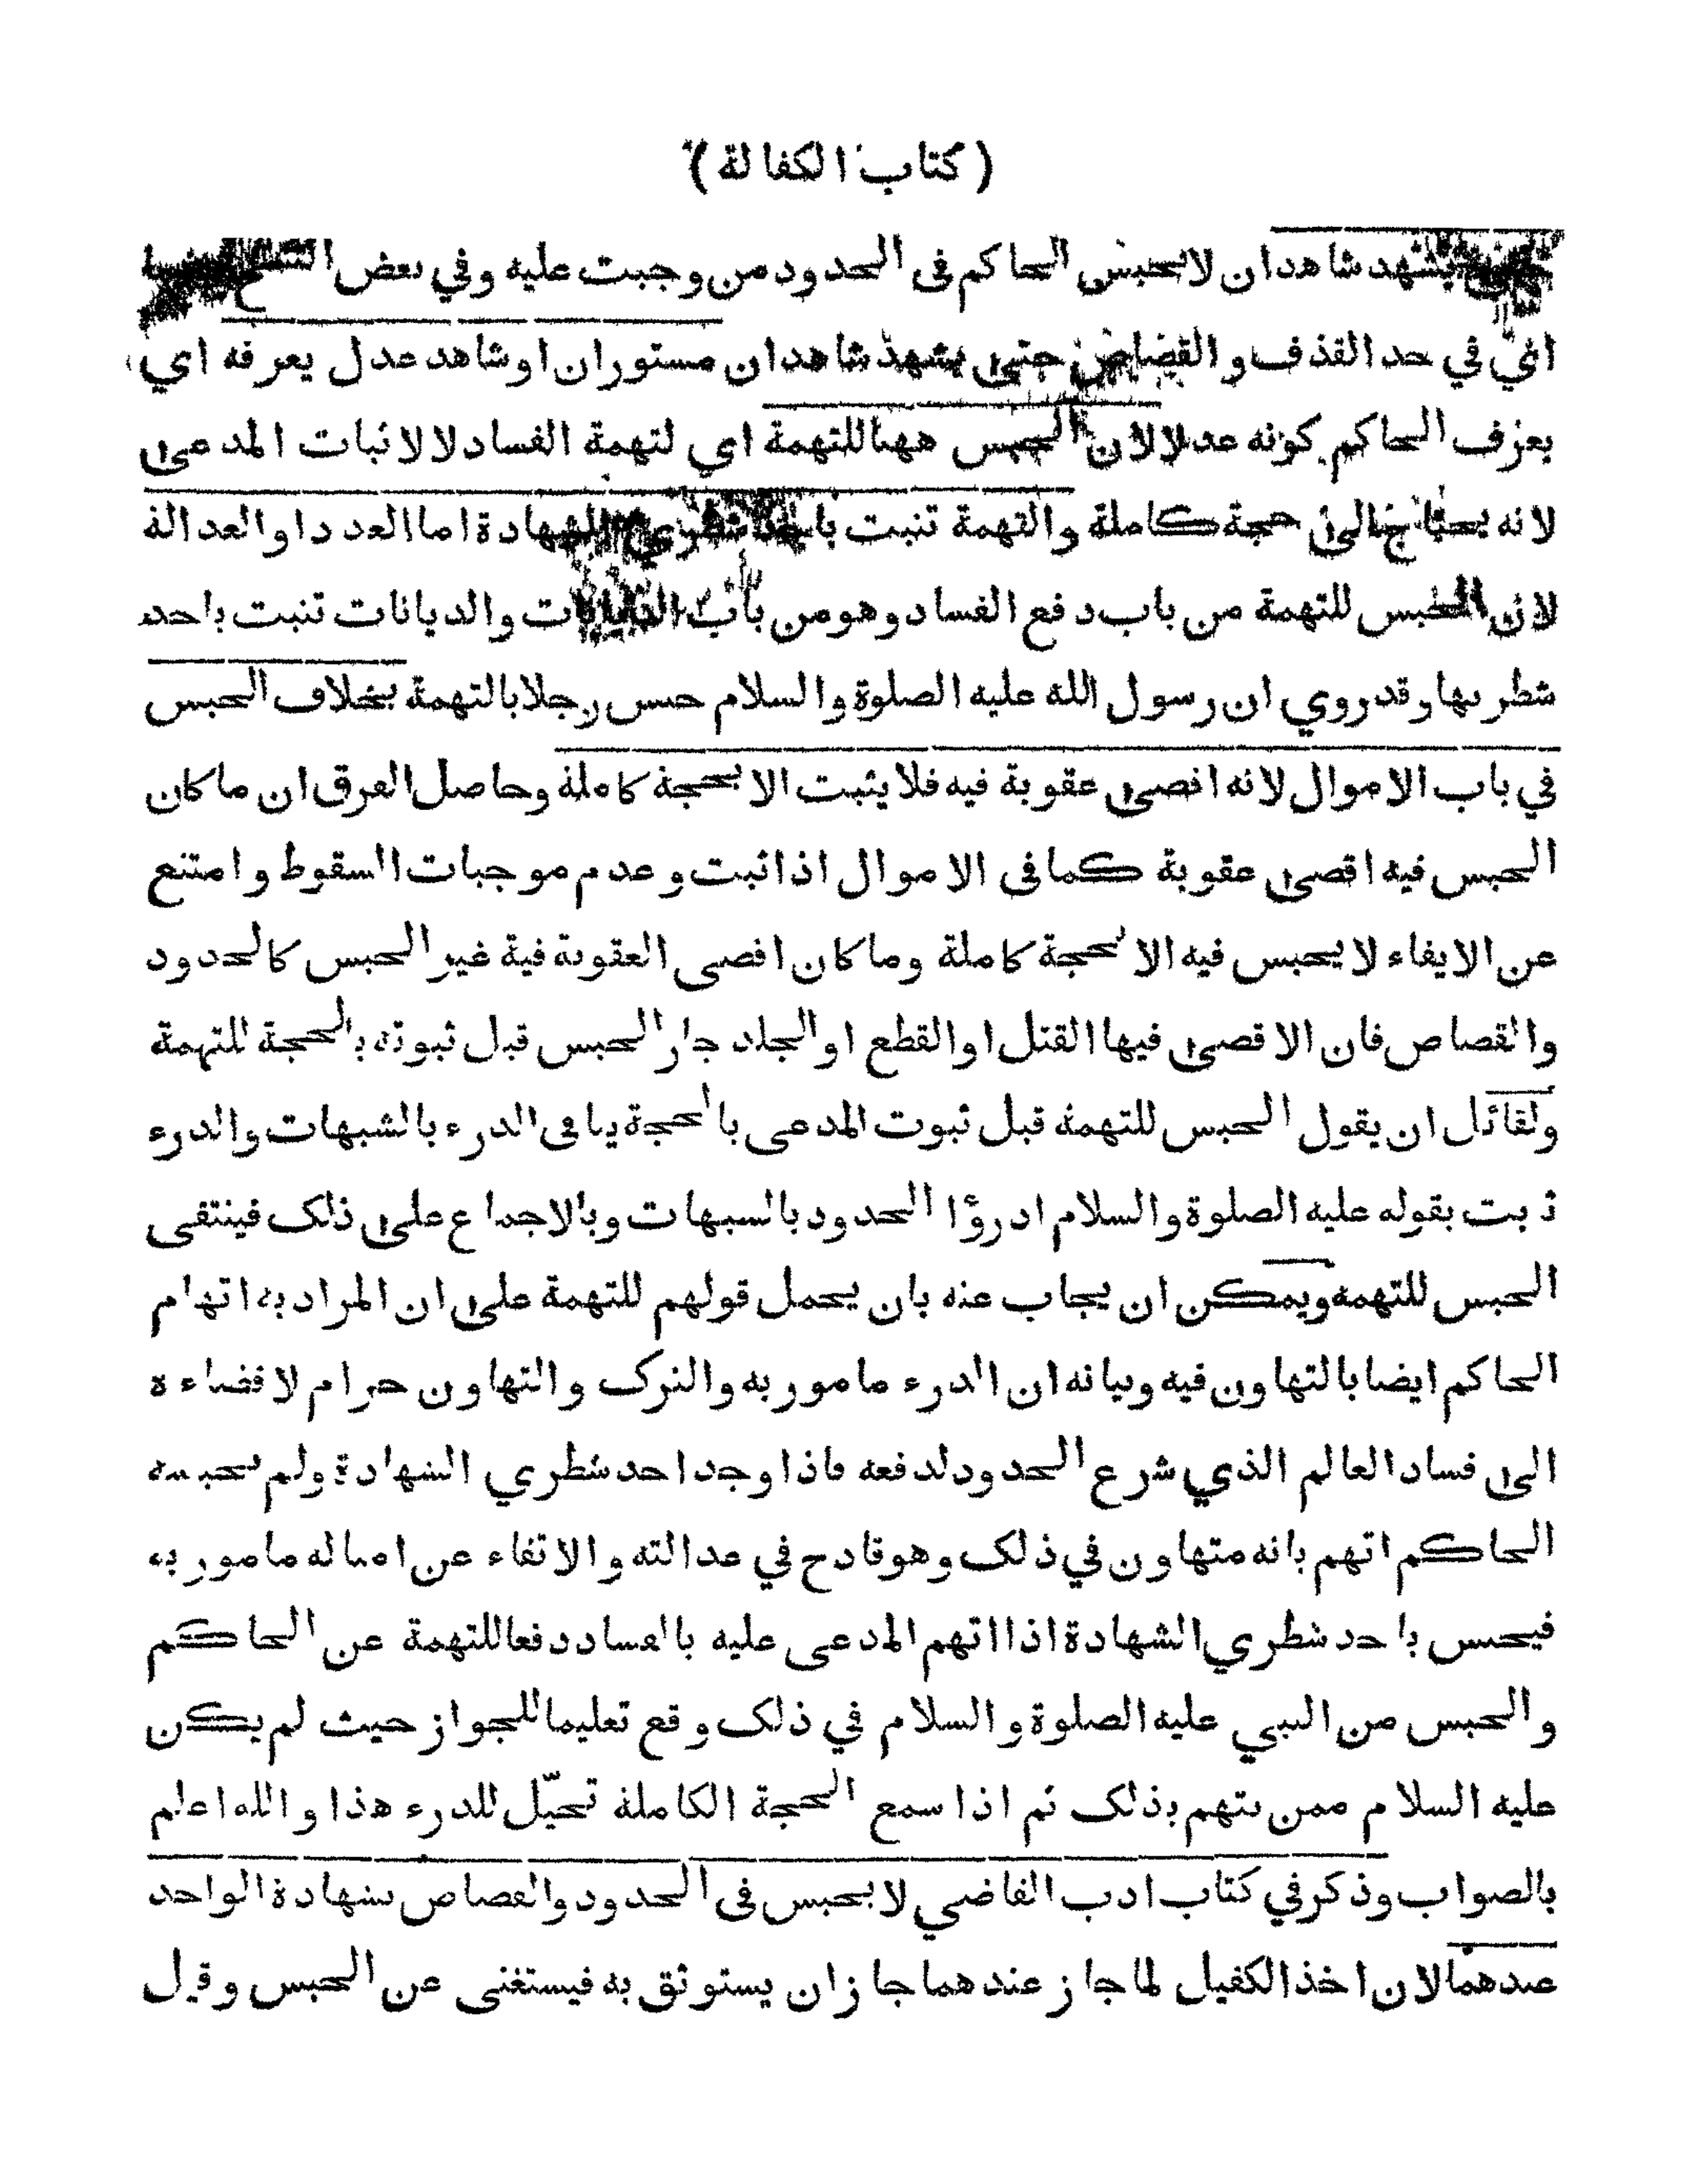 ( كتاب الكفالة )
يشهد شاهدان لا يحبس الحاكم فى الحدود من وجبت عليه وفي بعض النسخ
اي في حد القذف و القصاص حتى يشهد شاهدان مستوران او شاهد عدل يعرفه اي
يعرف الحاكم كونه عدلا لان الحبس ههنا للتهمة اي لتهمة الفساد لا لاثبات المدعى
لانه يحتاج الى حجة كاملة والتهمة تثبت باحد شطري الشهادة اما العدد او العدالة
لان الحبس للتهمة من باب دفع الفساد وهو من باب الديانات والديانات تثبت باحد
شطريها وقد روي ان رسول الله عليه الصلوة والسلام حبس رجلا بالتهمة بخلاف الحبس
في باب الاموال لانه اقصى عقوبة فيه فلا يثبت الا بحجة كاملة وحاصل الفرق ان ما كان
الحبس فيه اقصى عقوبة كما فى الاموال اذا ثبت وعدم موجبات السقوط وامتنع
عن الايفاء لا يحبس فيه الا بحجة كاملة وما كان اقصى العقوبة فية غير الحبس كالحدود
والقصاص فان الاقصى فيها القتل او القطع او الجلد جاز الحبس قبل ثبوته بالحجة للتهمة
ولقائل ان يقول الحبس للتهمة قبل ثبوت المدعى بالحجة ينافى الدرء بالشبهات والدرء
ثبت بقوله عليه الصلوة والسلام ادرؤا الحدود بالشبهات وبالاجماع على ذلك فينتفى
الحبس للتهمة ويمكن ان يجاب عنه بان يحمل قولهم للتهمة على ان المراد به اتهام
الحاكم ايضا بالتهاون فيه وبيانه ان الدرء مامور به والترك والتهاون حرام لافضاءه
الى فساد العالم الذي شرع الحدود لدفعه فاذا وجد احد شطري الشهادة ولم يحبسه
الحاكم اتهم بانه متهاون في ذلك وهو قادح في عدالته والاتقاء عن امثاله مامور به
فيحبس باحد شطري الشهادة اذا اتهم المدعى عليه بالفساد دفعا للتهمة عن الحاكم
والحبس من النبي عليه الصلوة والسلام في ذلك وقع تعليما للجواز حيث لم يكن
عليه السلام ممن يتهم بذلك ثم اذا سمع الحجة الكاملة تحيّل للدرء هذا والله اعلم
بالصواب وذكر في كتاب ادب القاضي لا يحبس فى الحدود والقصاص بشهادة الواحد
عندهما لان اخذ الكفيل لما جاز عندهما جاز ان يستوثق به فيستغنى عن الحبس وقيل